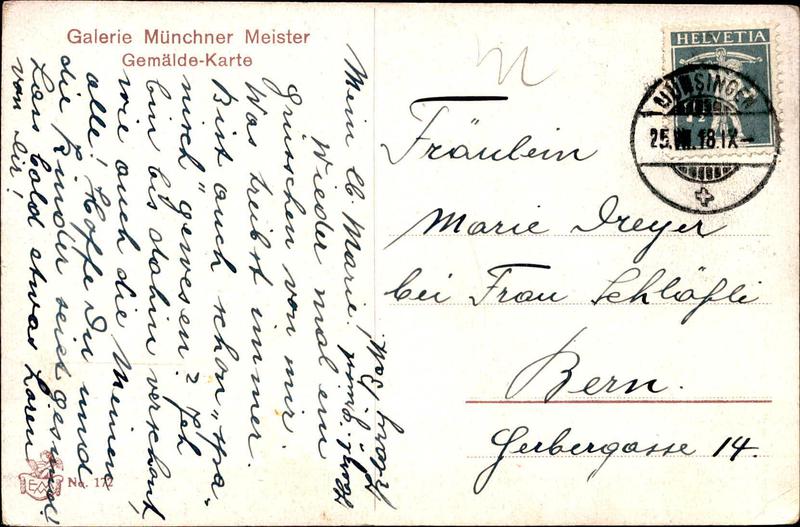 Galerie Münchner Meister
Gemälde-Karte
Mein lb Marie!
Wieder mal ein
Grüsschen von mir.
Was treibst immer.
Bist auch schon „spa-
nisch" gewesen? Ich
bin bis dahin verschont,
wie auch die Meinen
alle! Hoffe Du und
die Kinder seiet gesund!
Lass bald etwas hören
von Dir!
No. 172
HELVETIA
MÜNSINGEN
25.VII.18.IX-
Fräulein
Marie Dreyer
bei Frau Schläfli
Bern.
Gerbergasse 14.